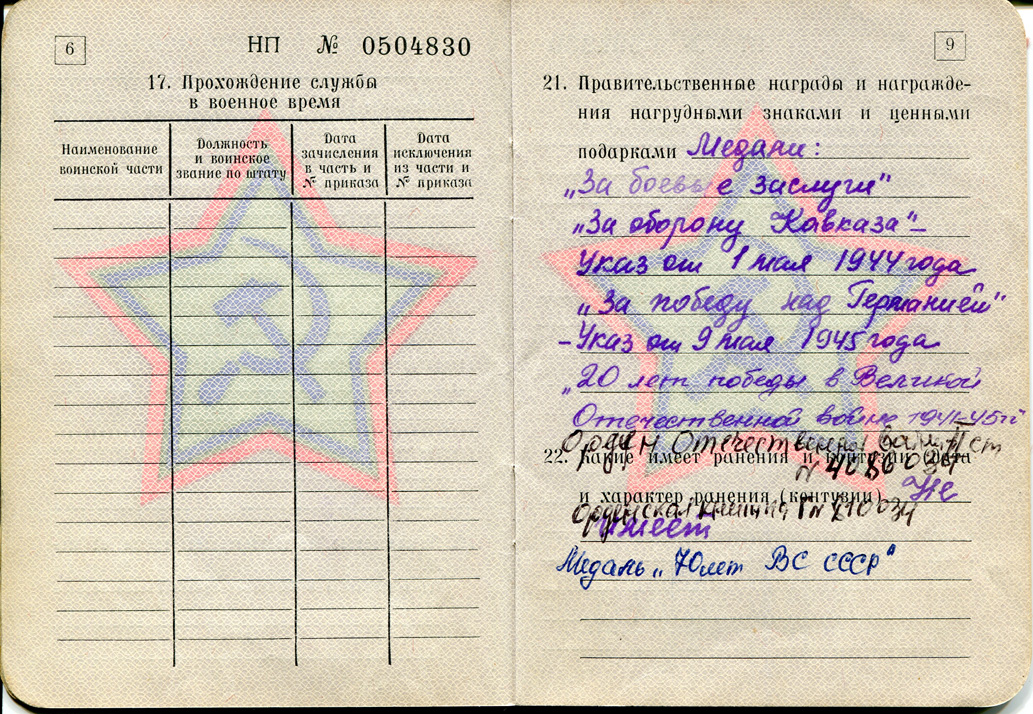 6
НП № 0504830
17. Прохождение службы
в военное время
Наименование
воинской части
Должность
и воинское
звание по штату
Дата
зачисления
в часть и
№ приказа
Дата
исключения
из части и
№ приказа
9
21. Правительственные награды и награжде-
ния нагрудными знаками и ценными
подарками Медали:
„За боевые заслуги"
„За оборону Кавказа"–
Указ от 1 мая 1944 года
„За победу над Германией"
–Указ от 9 мая 1945 года
„20 лет победы в Великой
Отечественной войне 1941-45гг
Орден Отечественной войны II ст
22. Какие имеет ранения и контузии (дата
N
и характер ранения (контузии) Не
Орденская книжка
имеет
Медаль „70 лет ВС СССР"